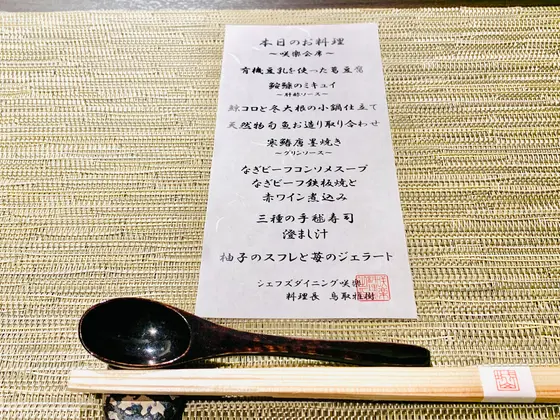 本日のお料理
~咲樂会席~
有機豆乳を使った葛豆腐
鮟鱇のミキュイ
~肝酢ソース~
鯨コロと冬大根の小鍋仕立て
天然物旬魚お造り取り合わせ
寒鰆唐墨焼き
~グリンソース~
なぎビーフコンソメスープ
なぎビーフ鉄板焼と
赤ワイン煮込み
三種の手毬寿司
澄まし汁
柚子のスフレと苺のジェラート
シェフズダイニング咲樂
料理長 鳥取雅樹